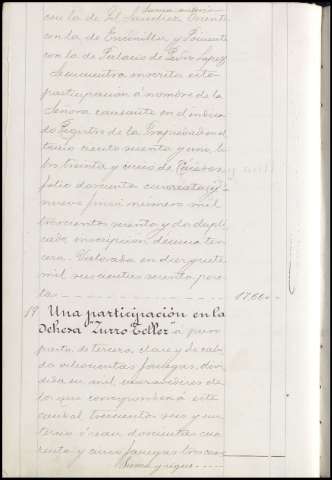 Suma anterior
con la de Gil Sanchez Oriente
con la de Encinillas y Poniente
con la de Palacio de Pedro Lopez
Se encuentra inscrita esta
participación á nombre de la
Señora causante en el indica
do Registro de la Propiedad en el
tomo ciento sesenta y uno, li
bro treinta y cinco de Cáceres
folio doscientos cuarenta y
nueve finca número mil
trescientos sesenta y dos dupli
cado inscripción décima ter
cera. Valorada en diez y siete
mil seiscientas sesenta pese
tas 17,660
19 Una participación en la
Dehesa "Zurro Teller" á puro
pasto, de tercera clase y de cabi
da ochocientas fanegas, divi
dida en mil maravedises de
lo que corresponden á este
caudal trescientos seis y un
tercio ó sean doscientas cua
renta y cinco fanegas
Suma y sigue